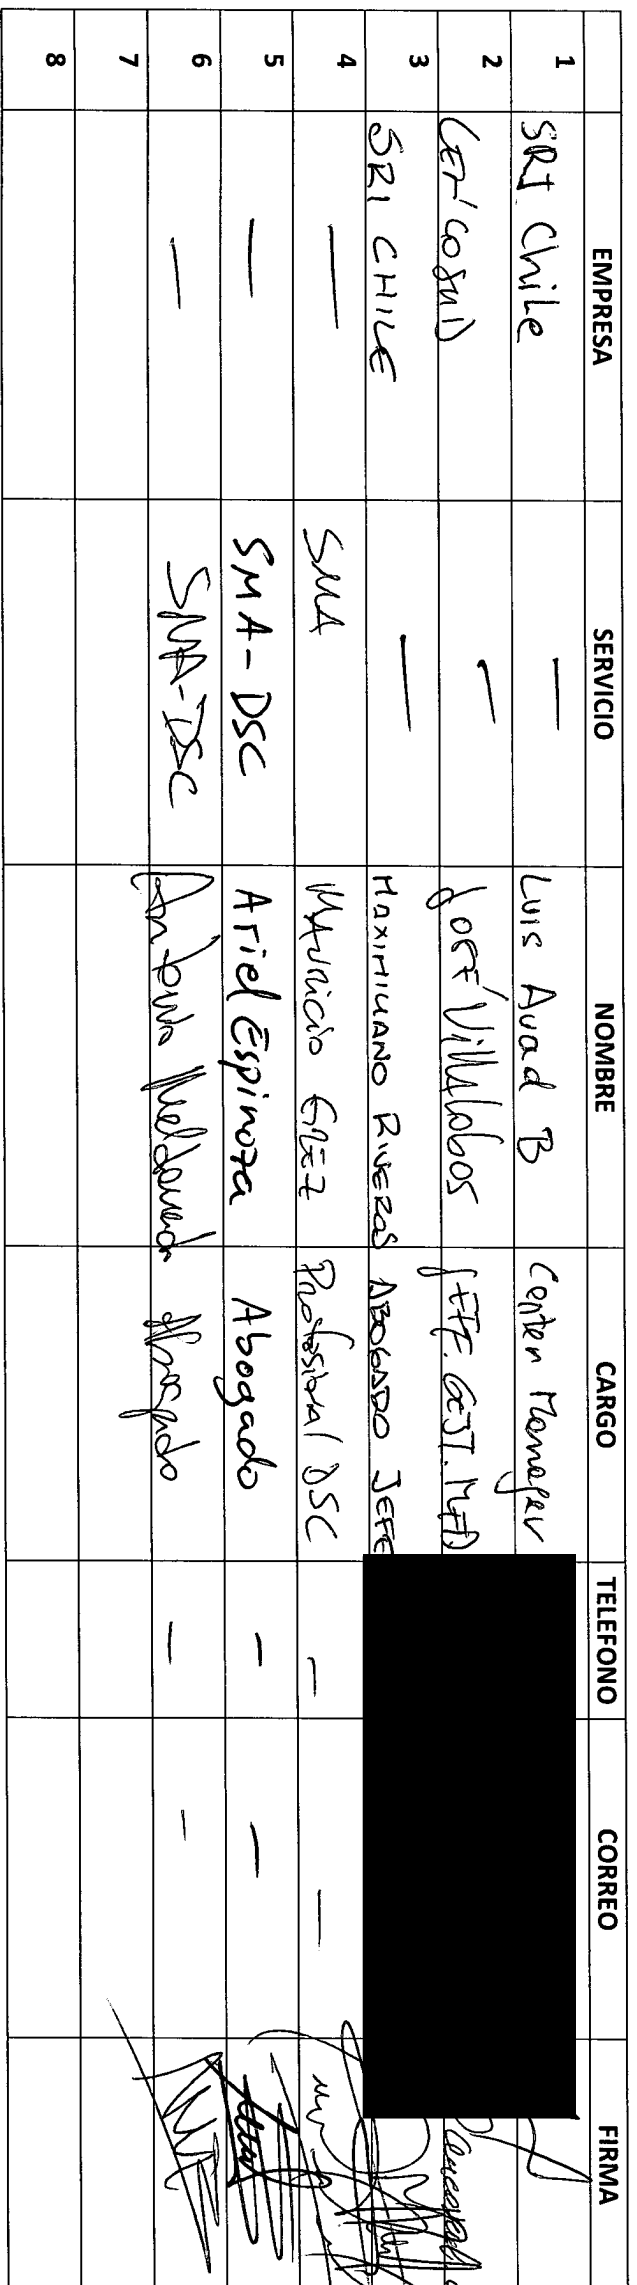 EMPRESA SERVICIO NOMBRE CARGO TELEFONO CORREO FIRMA
1 SRI Chile — Luis Auad B Center Manager
2 CENCOSUD — JOSÉ Villalobos JEFE. GEST. M.A
3 SRI CHILE — MAXIMILIANO RIVEROS ABOGADO JEFE
4 — SMA MAURICIO GREZ Profesional DSC — —
5 — SMA-DSC Ariel Espinoza Abogado — —
6 — SMA-DSC Antonio Maldonado Abogado — —
7
8